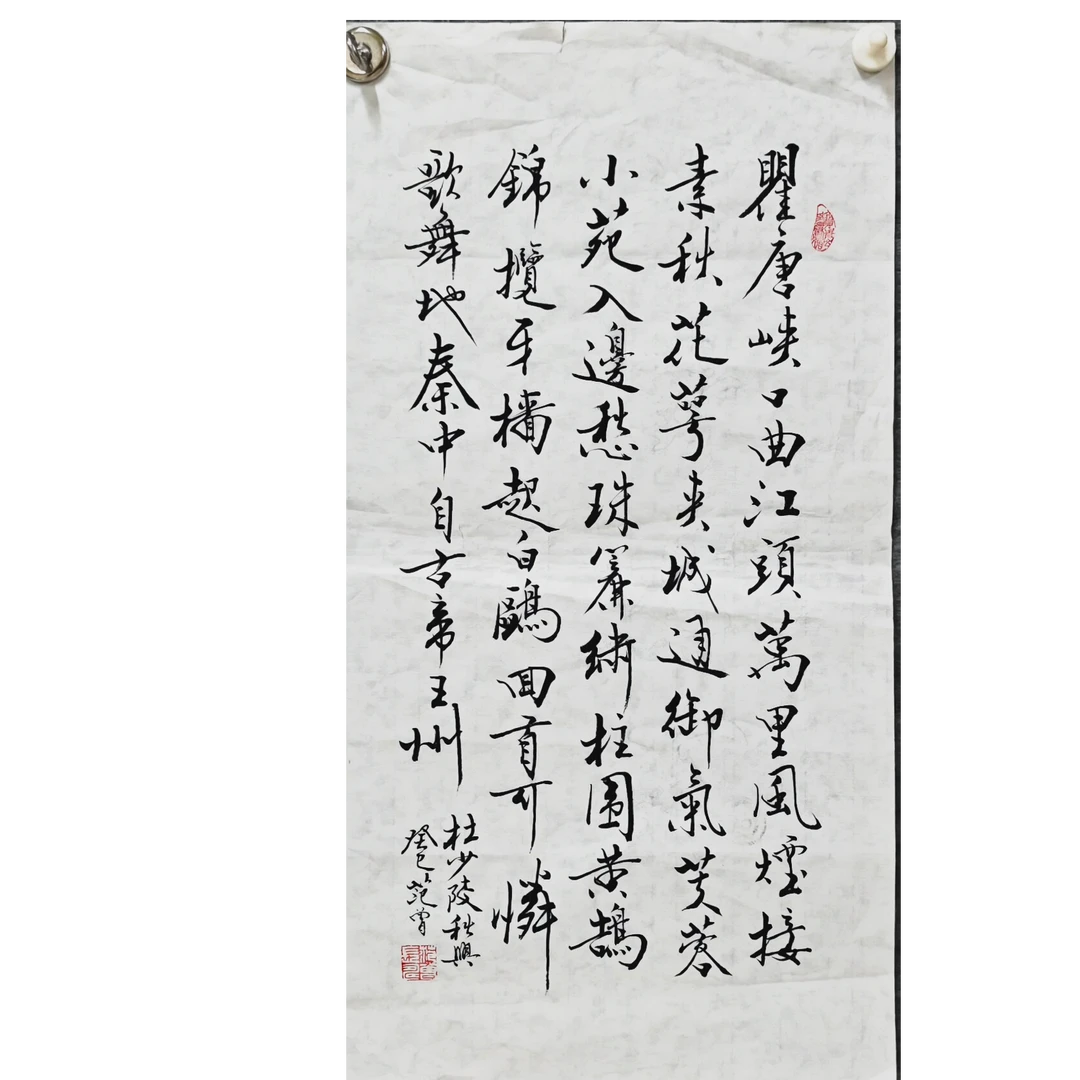 瞿唐峽口曲江頭萬里風煙接
素秋花萼夾城通御氣芙蓉
小苑入邊愁珠簾繡柱圍黃鵠
錦攬牙檣起白鷗回首可憐
歌舞地秦中自古帝王州
杜少陵秋興
癸巳范曾